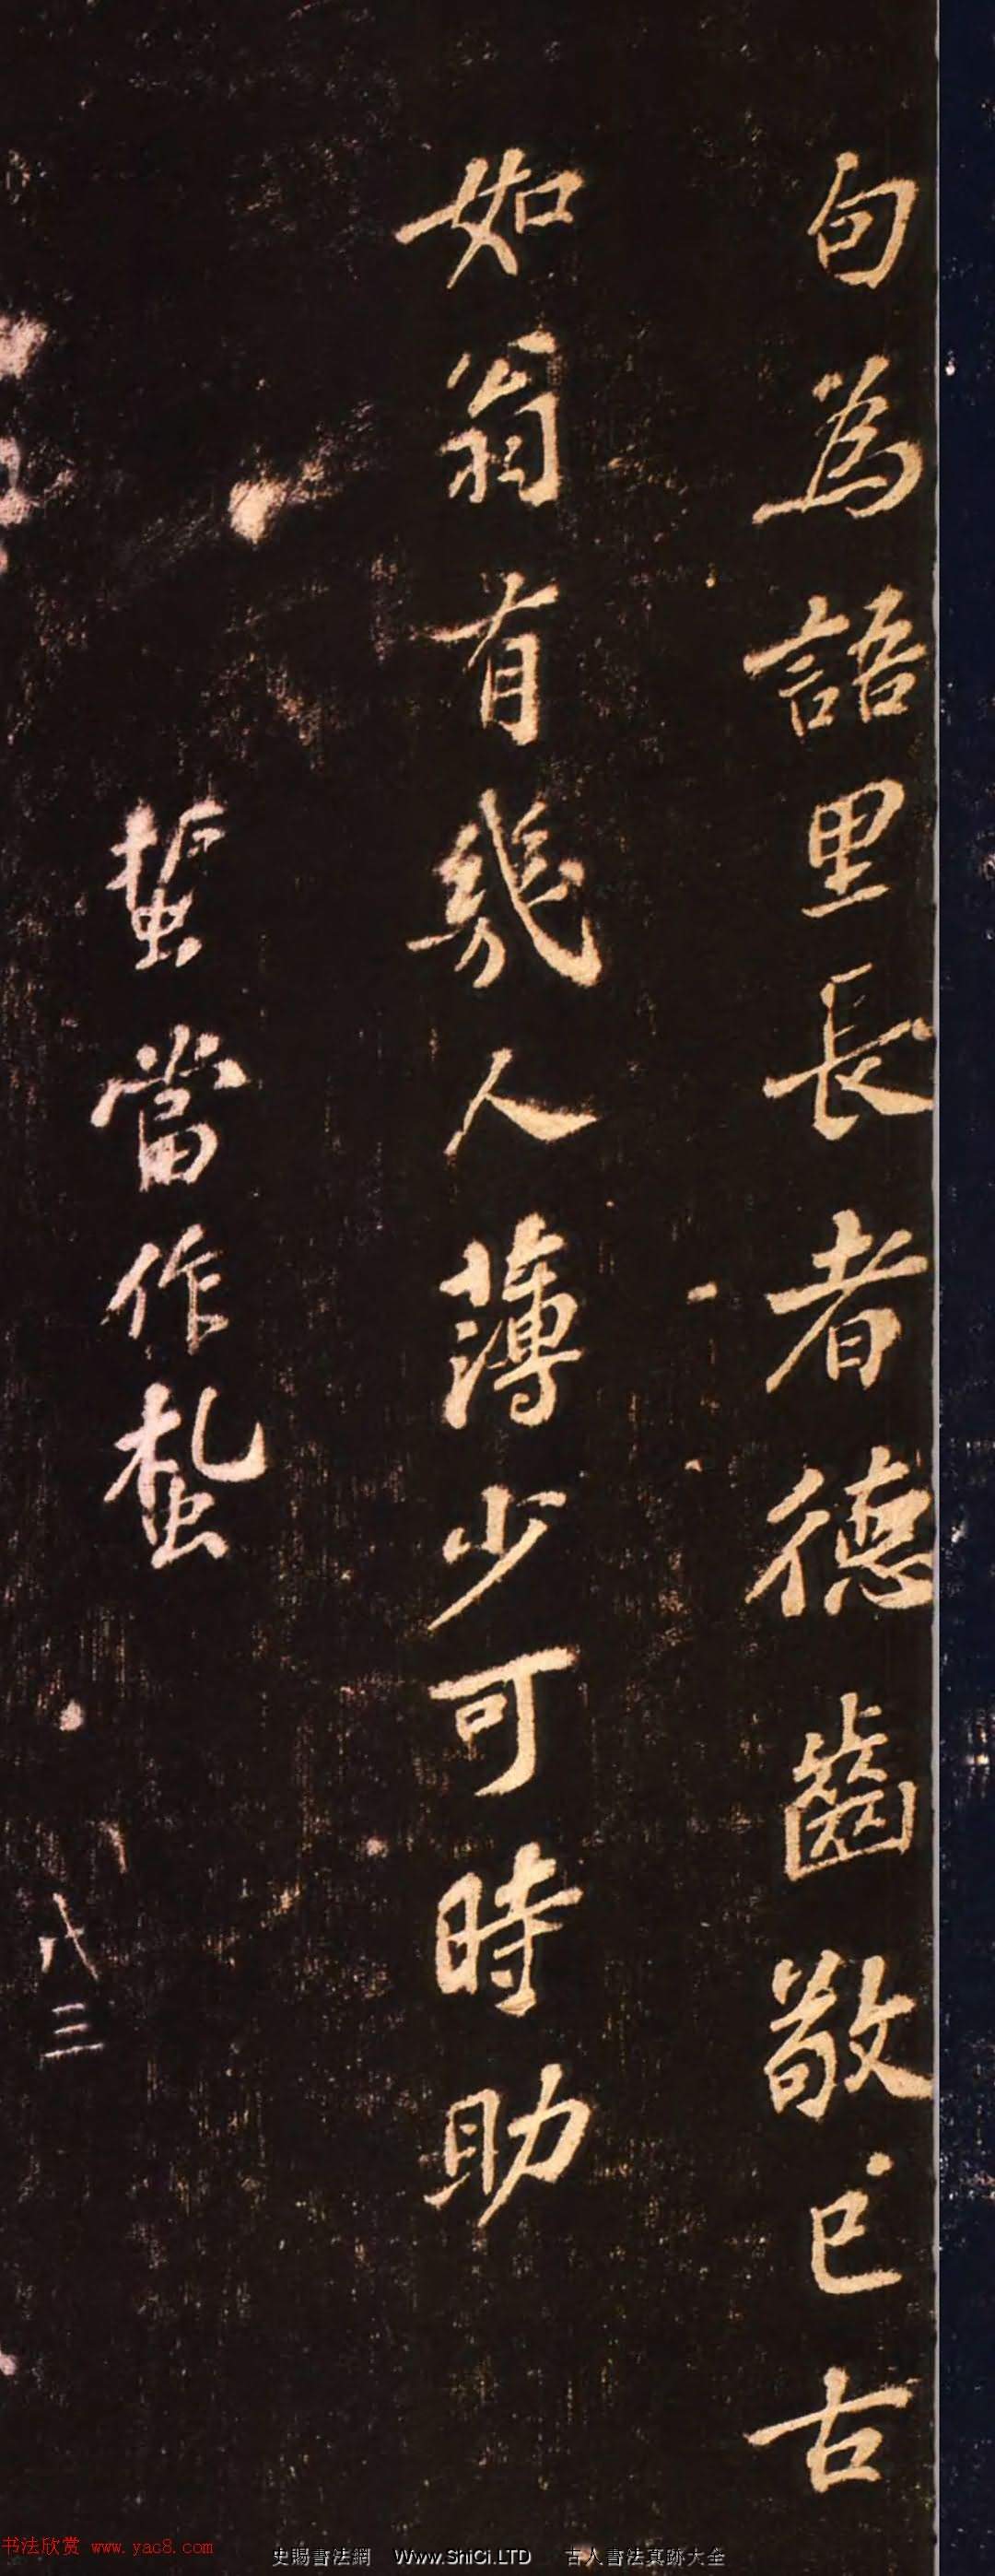 句為語里長者德齒敬已古
如翁有幾人薄少可時助
蜇當作蚻
八三
书法欣赏 www.yac8.com
史賜書法網 Www.ShiCi.LTD 古人書法真跡大全